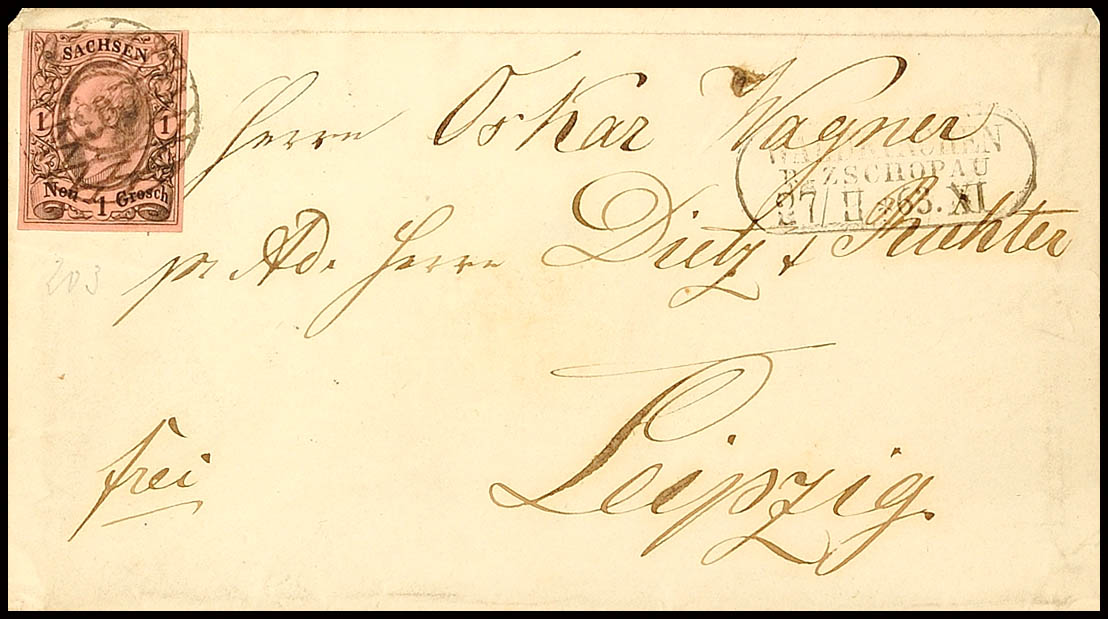 SACHSEN
1 1
Neu 1 Grosch
Herrn Oskar Wagner
WALDKIRCHEN
B. ZSCHOPAU
27/II * 63. XI
pr Ad. Herrn Dietz & Richter
203
Leipzig.
frei